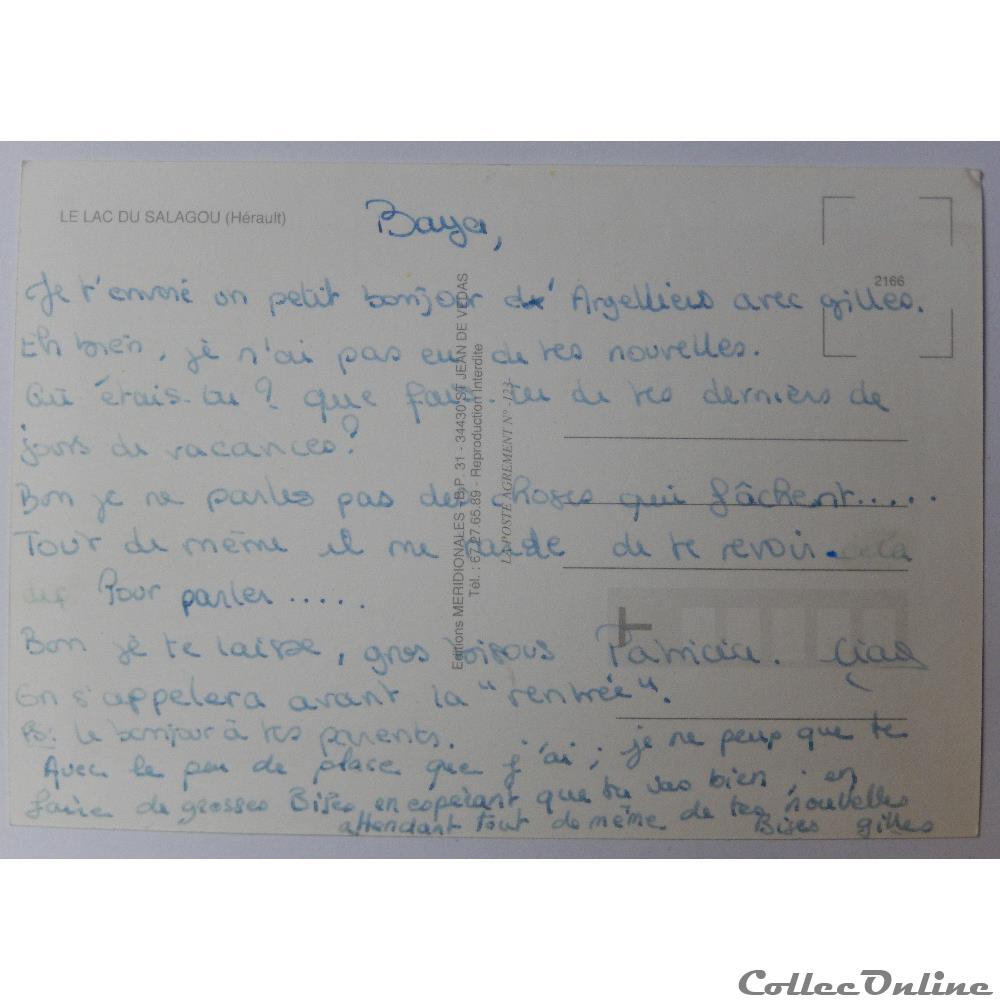 LE LAC DU SALAGOU (Hérault)
Baya,
2166
Je t'envoie un petit bonjour d' Argelliers avec gilles.
Eh bien, je n'ai pas eu de tes nouvelles.
Où étais-tu ? que fais-tu de tes derniers de
jours de vacances ?
Bon je ne parles pas des choses qui fâchent.....
Tout de même il me tarde de te revoir.
Pour parler .....
Bon je te laisse, gros bisous Patricia. Ciao
On s'appelera avant la "rentrée".
PS: le bonjour à tes parents.
Avec le peu de place que j'ai ; je ne peux que te
faire de grosses Bises, en espérant que tu vas bien ; en
attendant tout de même de tes nouvelles
Bises gilles
Editions MERIDIONALES - B.P. 31 - 34430 ST JEAN DE VEDAS
Tél. : 67.27.65.89 - Reproduction Interdite
LA POSTE AGREMENT N° -123-
CollecOnline